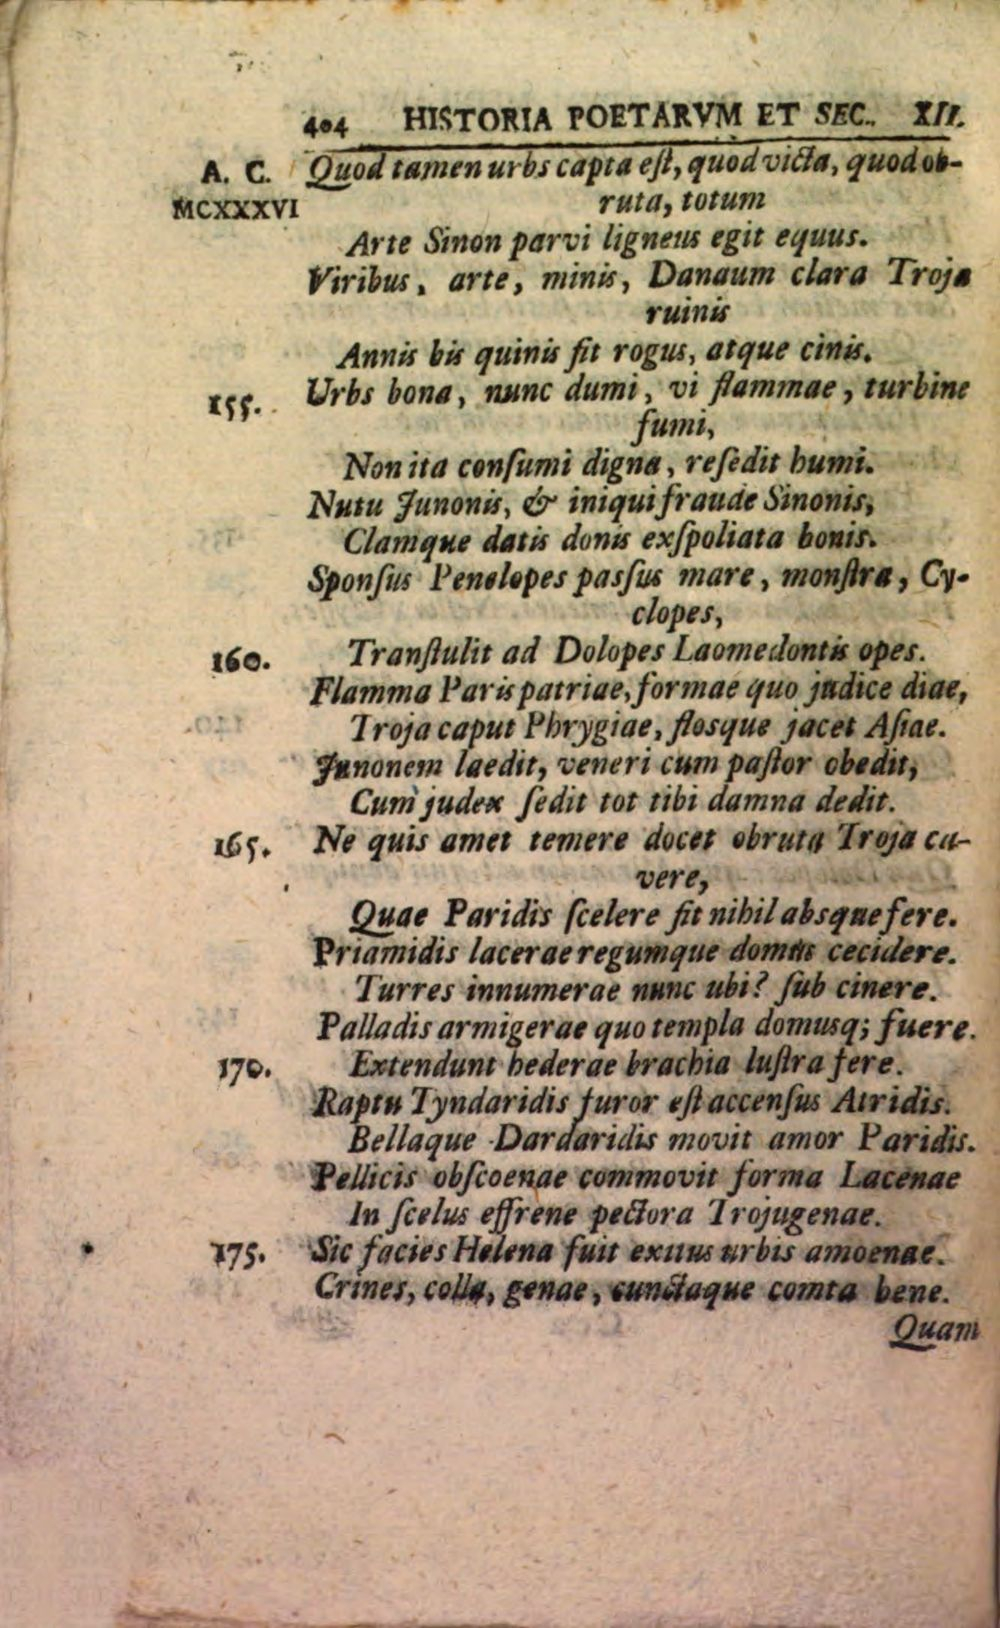 404 HISTORIA POETARVM ET SEC. XII.
A. C. Quod tamen urbs capta eſt, quod victa, quod ob-
MCXXXVI ruta, totum
Arte Sinon parvi ligneus egit equus.
Viribus, arte, minis, Danaum clara Troja
ruinis
Annis bis quinis fit rogus, atque cinis.
155. Urbs bona, nunc dumi, vi flammae, turbine
fumi,
Non ita conſumi digna, reſedit humi.
Nutu Junonis, & iniqui fraude Sinonis,
Clamque datis donis exſpoliata bonis.
Sponſus Penelopes paſſus mare, monſtra, Cy-
clopes,
160. Tranſtulit ad Dolopes Laomedontis opes.
Flamma Paris patriae, formae quo judice diae,
Troja caput Phrygiae, floſque jacet Aſiae.
Junonem laedit, veneri cum paſtor obedit,
Cum judex ſedit tot tibi damna dedit.
165. Ne quis amet temere docet obruta Troja ca-
vere,
Quae Paridis ſcelere fit nihil absque fere.
Priamidis lacerae regumque domus cecidere.
Turres innumerae nunc ubi? ſub cinere.
Palladis armigerae quo templa domusq; fuere.
170. Extendunt hederae brachia luſtra fere.
Raptu Tyndaridis furor eſt accenſus Atridis.
Bellaque Dardaridis movit amor Paridis.
Pellicis obſcoenae commovit forma Lacenae
In ſcelus effrene pectora Trojugenae.
175. Sic facies Helena fuit exitus urbis amoenae.
Crines, colla, genae, cunctaque comta bene.
Quam